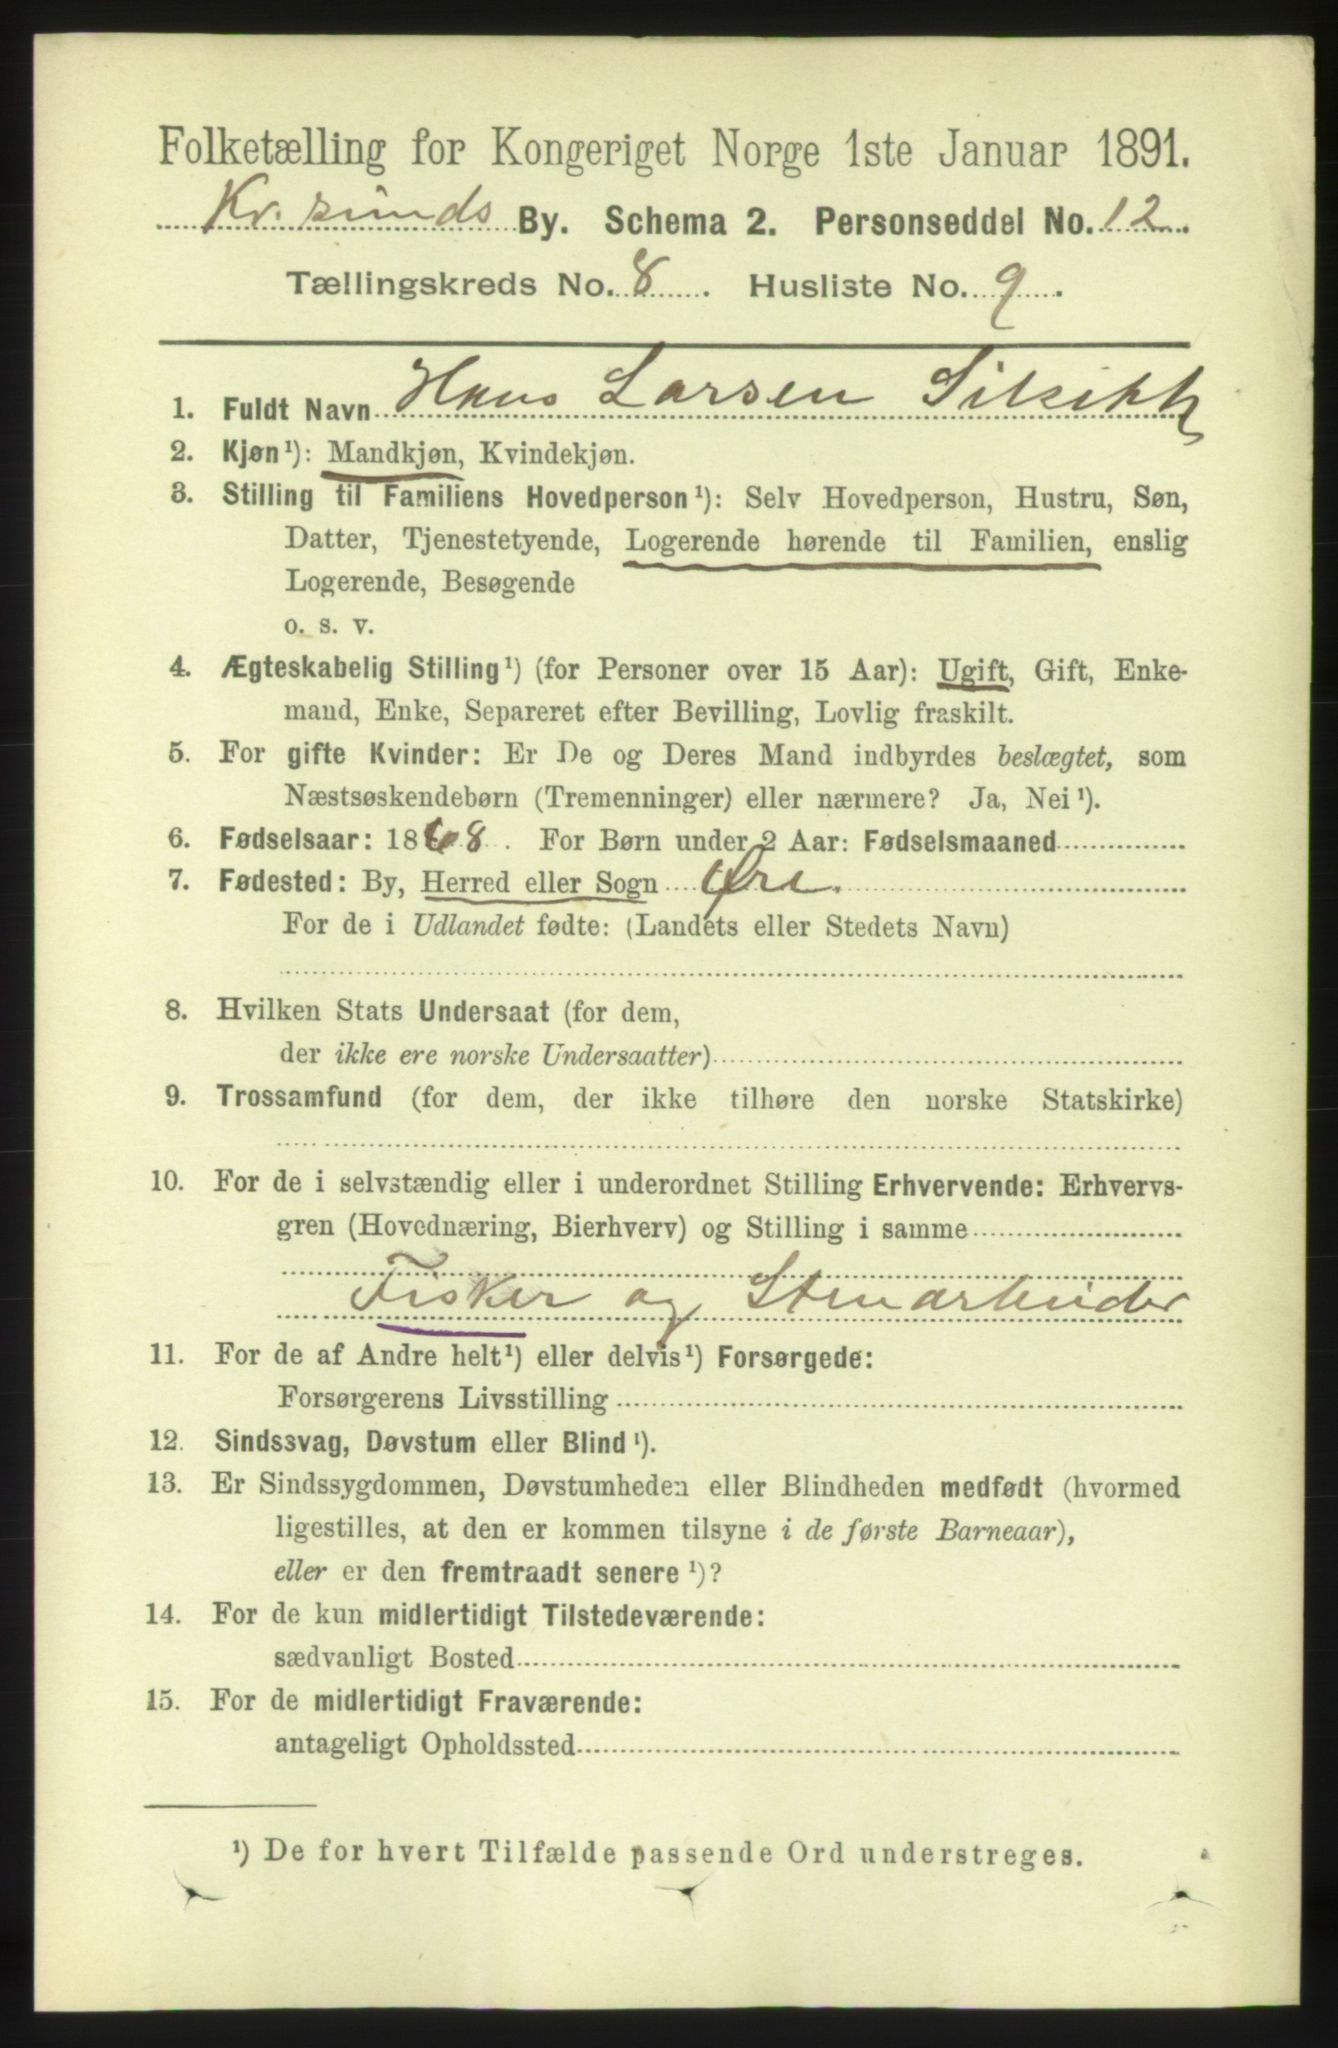 Folketælling for Kongeriget Norge 1ste Januar 1891.
Kr.sunds By. Schema 2. Personseddel No. 12.
Tællingskreds No. 8. Husliste No. 9.
1. Fuldt Navn Hans Larsen
2. Kjøn¹): Mandkjøn, Kvindekjøn.
3. Stilling til Familiens Hovedperson¹): Selv Hovedperson, Hustru, Søn,
Datter, Tjenestetyende, Logerende hørende til Familien, enslig
Logerende, Besøgende
o. s. v.
4. Ægteskabelig Stilling¹) (for Personer over 15 Aar): Ugift, Gift, Enke-
mand, Enke, Separeret efter Bevilling, Lovlig fraskilt.
5. For gifte Kvinder: Er De og Deres Mand indbyrdes beslægtet, som
Næstsøskendebørn (Tremenninger) eller nærmere? Ja, Nei¹).
6. Fødselsaar: 1868. For Børn under 2 Aar: Fødselsmaaned
7. Fødested: By, Herred eller Sogn Øre.
For de i Udlandet fødte: (Landets eller Stedets Navn)
8. Hvilken Stats Undersaat (for dem,
der ikke ere norske Undersaatter)
9. Trossamfund (for dem, der ikke tilhøre den norske Statskirke)
10. For de i selvstændig eller i underordnet Stilling Erhvervende: Erhvervs-
gren (Hovednæring, Bierhverv) og Stilling i samme
Fisker og Stenarbeider
11. For de af Andre helt¹) eller delvis¹) Forsørgede:
Forsørgerens Livsstilling
12. Sindssvag, Døvstum eller Blind¹).
13. Er Sindssygdommen, Døvstumheden eller Blindheden medfødt (hvormed
ligestilles, at den er kommen tilsyne i de første Barneaar),
eller er den fremtraadt senere¹)?
14. For de kun midlertidigt Tilstedeværende:
sædvanligt Bosted
15. For de midlertidigt Fraværende:
antageligt Opholdssted
¹) De for hvert Tilfælde passende Ord understreges.